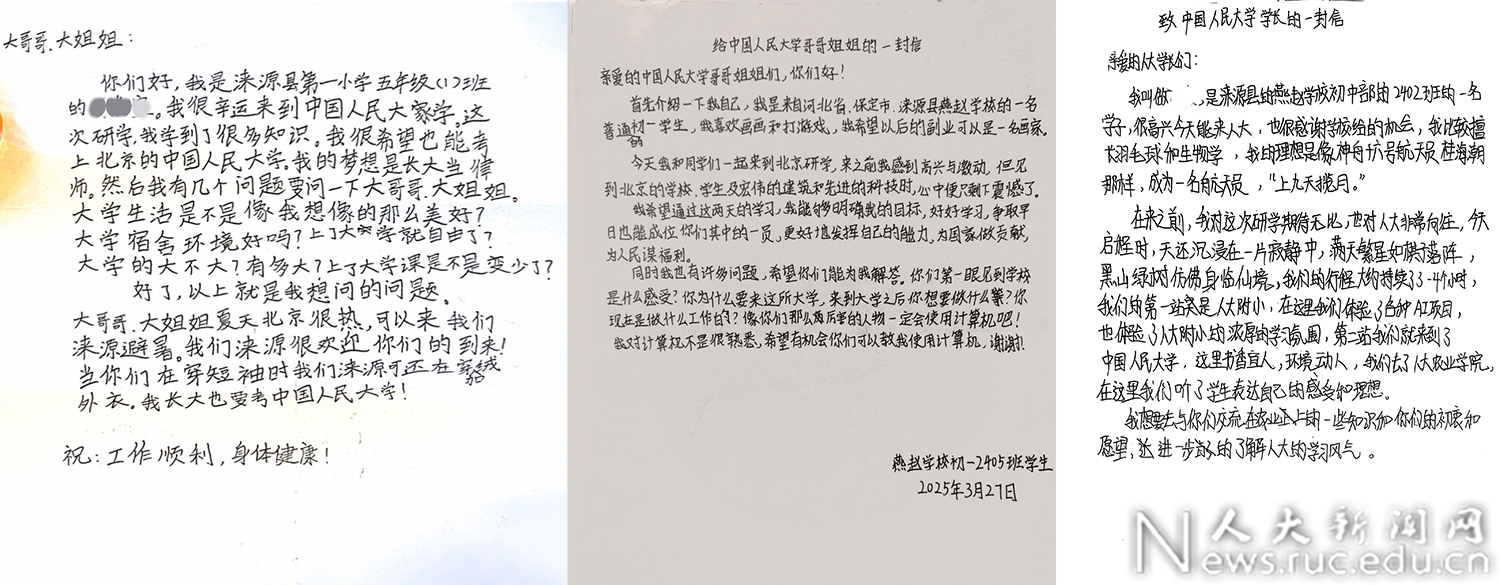 大哥哥.大姐姐:
你们好,我是涞源县第一小学五年级(1)班
的。我很幸运来到中国人民大家学。这
次研学,我学到了很多知识。我很希望也能考
上北京的中国人民大学。我的梦想是长大当律
师。然后我有几个问题要问一下大哥哥.大姐姐。
大学生活是不是像我想像的那么美好?
大学宿舍环境好吗?上了大学就自由了?
大学的大不大?有多大?上了大学课是不是变少了?
好了,以上就是我想问的问题。
大哥哥.大姐姐夏天北京很热,可以来我们
涞源避暑。我们涞源很欢迎你们的到来!
当你们在穿短袖时我们涞源可还在穿绒
外衣。我长大也要考中国人民大学!
祝:工作顺利,身体健康!
给中国人民大学哥哥姐姐的一封信
亲爱的中国人民大学哥哥姐姐们,你们好!
首先介绍一下我自己,我是来自河北省.保定市.涞源县燕赵学校的一名
普通的初一学生,我喜欢画画和打游戏,我希望以后的副业可以是一名画家。
今天我和同学们一起来到北京研学,来之前我感到高兴与激动,但见
到北京的学校.学生及宏伟的建筑和先进的科技时,心中便只剩下震憾了。
我希望通过这两天的学习,我能够明确我的目标,好好学习,争取早
日也能成位你们其中的一员,更好地发挥自己的能力,为国家做贡献,
为人民谋福利。
同时我也有许多问题,希望你们能为我解答。你们第一眼见到学校
是什么感受?你为什么要来这所大学,来到大学之后你想要做什么?你
现在是做什么工作的?像你们那么厉害的人物一定会使用计算机吧!
我对计算机不是很熟悉,希望有机会你们可以教我使用计算机,谢谢!
燕赵学校初一2405班学生
2025年3月27日
致中国人民大学学长的一封信
亲爱的人大学长们:
我叫做,是涞源县的燕赵学校初中部的2402班的一名
学子,很高兴今天能来人大,也很感谢学校给的机会,我比较擅
长羽毛球和生物学,我的理想是像神舟十六号航天员桂海潮
那样,成为一名航天员,“上九天揽月。”
在来之前,我对这次研学期待无比,也对人大非常向往,今天
启程时,天还沉浸在一片寂静中,满天繁星如棋子落阵,
黑山绿树仿佛身临仙境,我们的行程大约持续了3-4小时,
我们的第一站就是人大附小,在这里我们体验了各种AI项目,
也体验了人大附小的浓厚的学习氛围,第二站我们就来到了
中国人民大学,这里书香宜人,环境动人,我们去了人大农业学院,
在这里我们听了学生表达自己的感受和理想。
我想要去与你们交流在农业上的一些知识和你们的初衷和
愿望,进一步的了解人大的学习风气。
人大新闻网
News.ruc.edu.cn